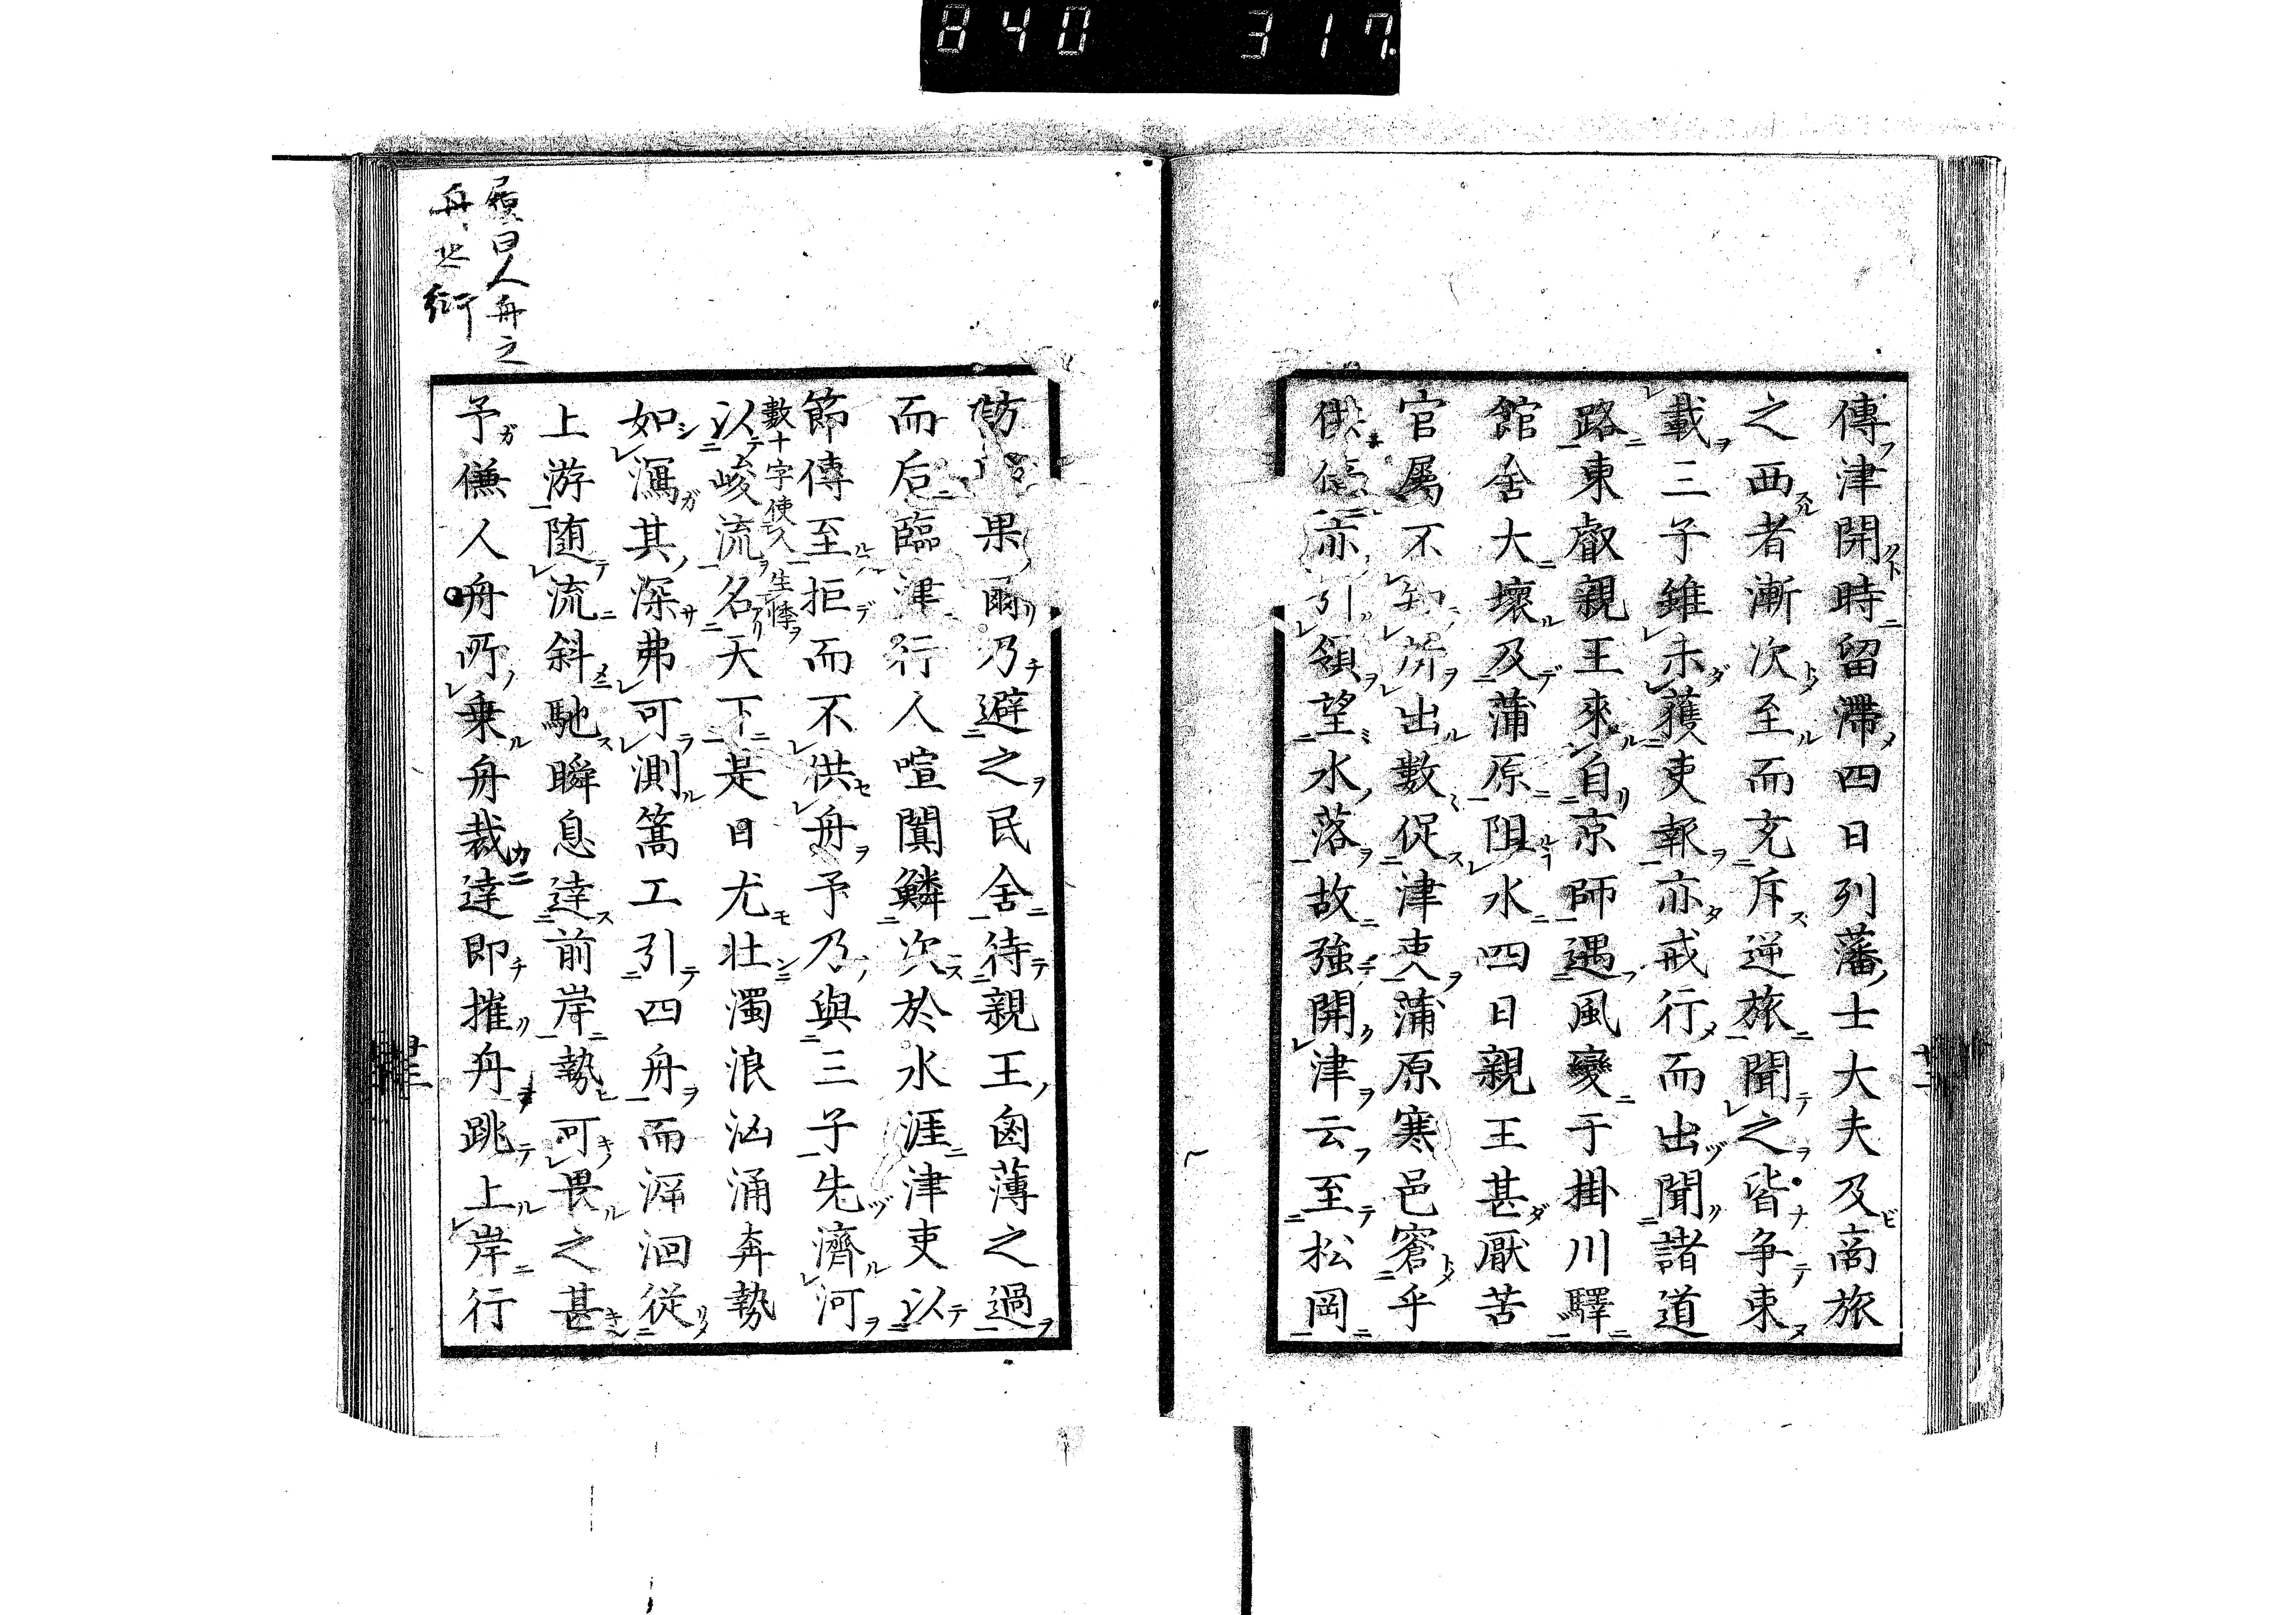 840 317
傳津開時留滯四日列藩士大夫及商旅
之西者漸次至而充斥逆旅聞之皆争東
載三子雖未獲吏報亦戒行而出聞諸道
路東叡親王來自京師遇風變于掛川驛
館舍大壞及蒲原阻水四日親王甚厭苦
官属不知所出數促津吏蒲原寒邑窘乎
供億亦引領望水落故強開津云至松岡
果爾乃避之民舍待親王鹵薄之過
而后臨津行人喧闐鱗次於水涯津吏以
節傳至拒而不供舟予乃與三子先濟河
數十字使人生悸
以峻流名天下是日尤壮濁浪汹涌奔勢
如瀉其深弗可測篙工引四舟而泝洄從
上游随流斜馳瞬息達前岸勢可畏之甚
予傔人舟所乗舟裁達即摧舟跳上岸行
曰人舟之
舟也衍